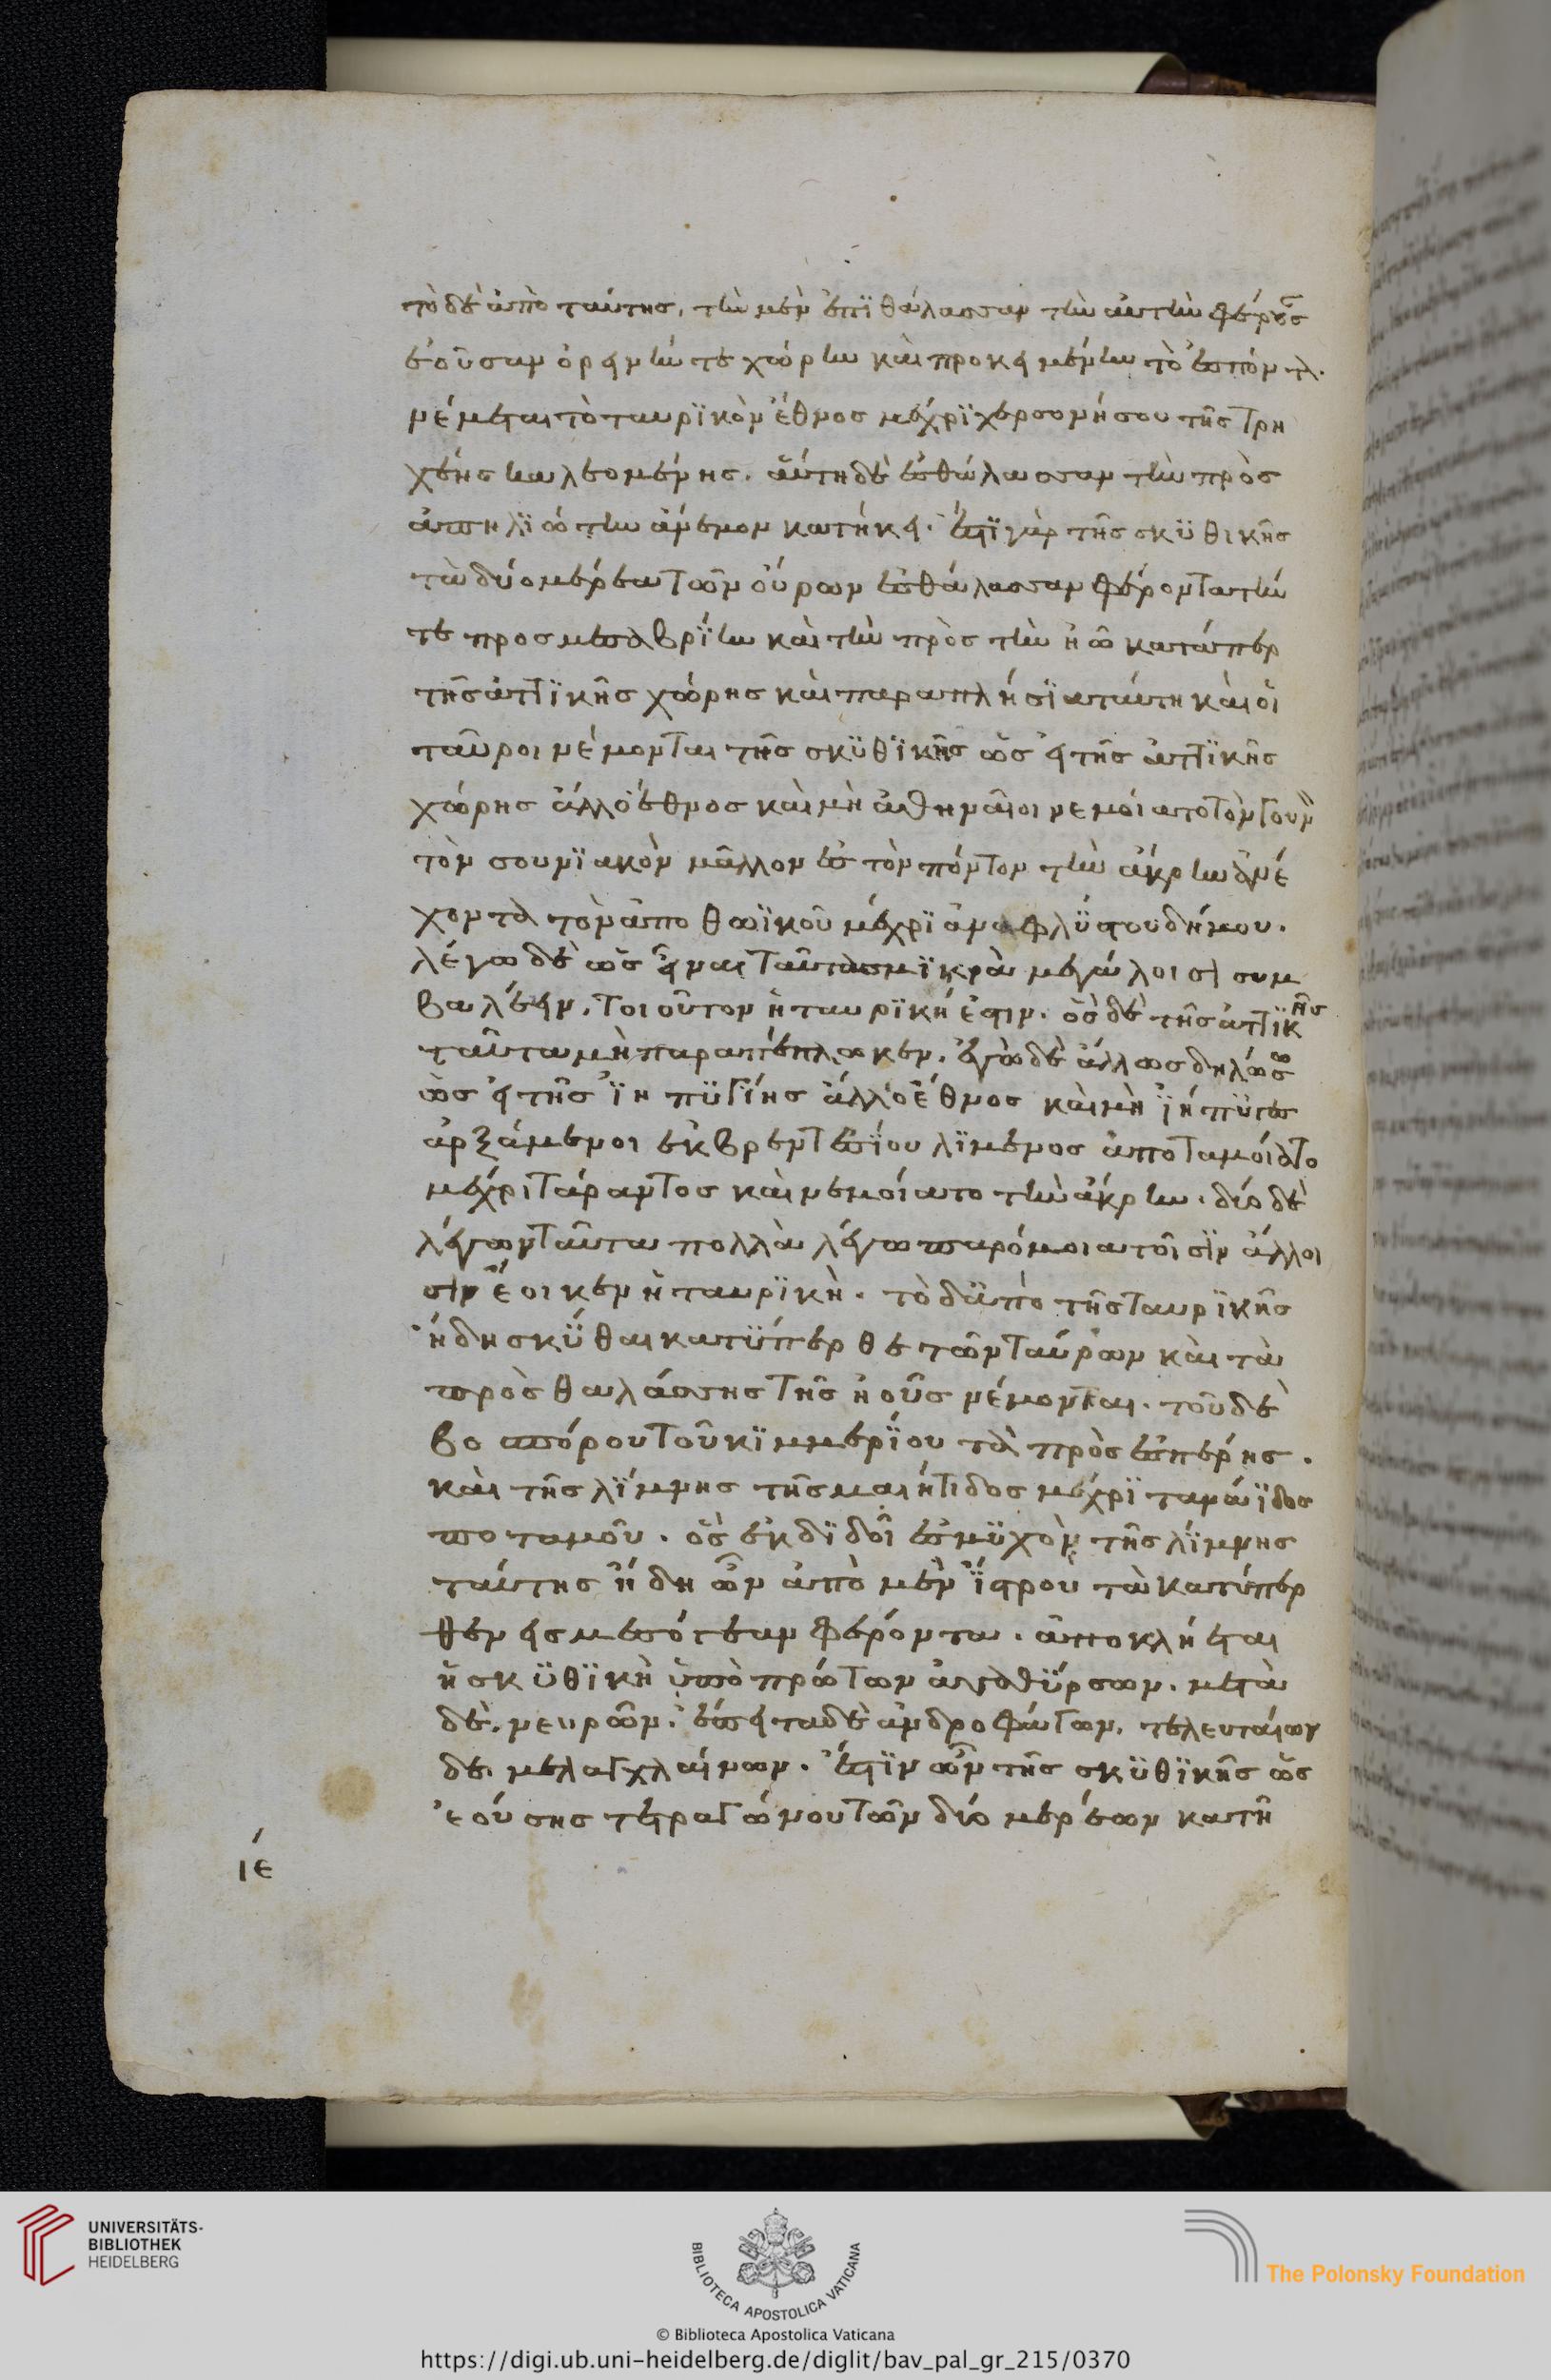 τὸ δὲ ἀπὸ ταύτης, τὴν μὲν ἐπῒ θάλασσαν τὴν αὐτὴν φέρους
ἐοῦσαν ὀρεινήν τε χώρην καὶ προκειμένην τὸ ἐς πόντ
νέμεται τὸ ταυρϊκὸν ἔθνος μέχρϊ χερσονήσου τῆς τρη
χέης καλεομένης. αὕτη δὲ ἐς θάλασσαν τὴν πρὸς
ἀπηλϊώτην ἄνεμον κατήκει. ἔστϊ γὰρ τῆς σκϋθικῆς
τὰ δύο μέρεα τῶν οὔρων ἐς θάλασσαν φέροντα τήν
τε προς μεσαβρΐην καὶ τὴν πρὸς τὴν ἠῶ κατάπερ
τῆς ἀττϊκῆς χώρης καὶ παραπλήσϊα ταύτη καὶ οἱ
ταῦροι νέμονται τῆς σκϋθϊκῆς ὡς εἰ τῆς ἀττϊκῆς
χώρης ἄλλο ἔθνος καὶ μὴ ἀθηναῖοι νεμοίατο τὸν γουν
τὸν σουνϊακὸν μᾶλλον ἐς τὸν πόντον τὴν ἄκρην ἀνέ
χοντα τὸν ἀπο θωϊκοῦ μέχρϊ ἀναφλΰστου δήμου.
λέγω δὲ ὡς εἶναι ταῦτα σμϊκρὰ μεγάλοισι συμ
βαλέειν. τοιοῦτον ἡ ταυρϊκή ἐστιν. ὃς δὲ τῆς ἀττϊκῆς
ταῦτα μὴ παραπέπλωκεν. ἐγὼ δὲ ἄλλως δηλώσω
ὡς εἰ τῆς ἰηπϋγίης ἄλλο ἔθνος καὶ μὴ ἰήπϋγες
ἀρξάμενοι ἐκ βρεντεσΐου λϊμένος ἀποταμοίατο
μέχρι τάραντος καὶ νεμοίατο τὴν ἄκρην. δύο δὲ
λέγων ταῦτα πολλὰ λέγω παρόμοια τοῖσϊν ἄλλοι
σιν ἔοικεν ἡ ταυρϊκὴ. τὸ δ'ἀπὸ τῆς ταυρϊκῆς
ἤδη σκΰθαι κατΰπερθε τῶν ταύρων καὶ τὰ
πρὸς θαλάσσης τῆς ἠοῦς νέμονται. τοῦ δὲ
βοσπόρου τοῦ κϊμμερΐου τὰ πρὸς ἑσπέρης.
καὶ τῆς λΐμνης τῆς μαιήτιδος μέχρϊ τανάϊδος
ποταμοῦ. ὃς ἐκδϊδοῖ ἐς μϋχὸν τῆς λΐμνης
ταύτης ἤδη ὦν ἀπὸ μὲν ΐστρου τὰ κατύπερ
θεν ἐς μεσόγεαν φέροντα. ἀποκληίεται
ἡ σκϋθϊκὴ ὑπὸ πρώτων ἀγαθΰρσων. μετὰ
δὲ. νευρῶν. ἔπειτα δὲ ἀνδροφάγων. τελευταίων
δε. μελαγχλαίνων. ἔστϊν ὦν τῆς σκϋθϊκῆς ὡς
ἐούσης τετραγώνου τῶν δύο μερέων κατη
ιέ
UNIVERSITÄTS-
BIBLIOTHEK
HEIDELBERG
BIBLIOTECA APOSTOLICA VATICANA
The Polonsky Foundation
© Biblioteca Apostolica Vaticana
https://digi.ub.uni-heidelberg.de/diglit/bav_pal_gr_215/0370